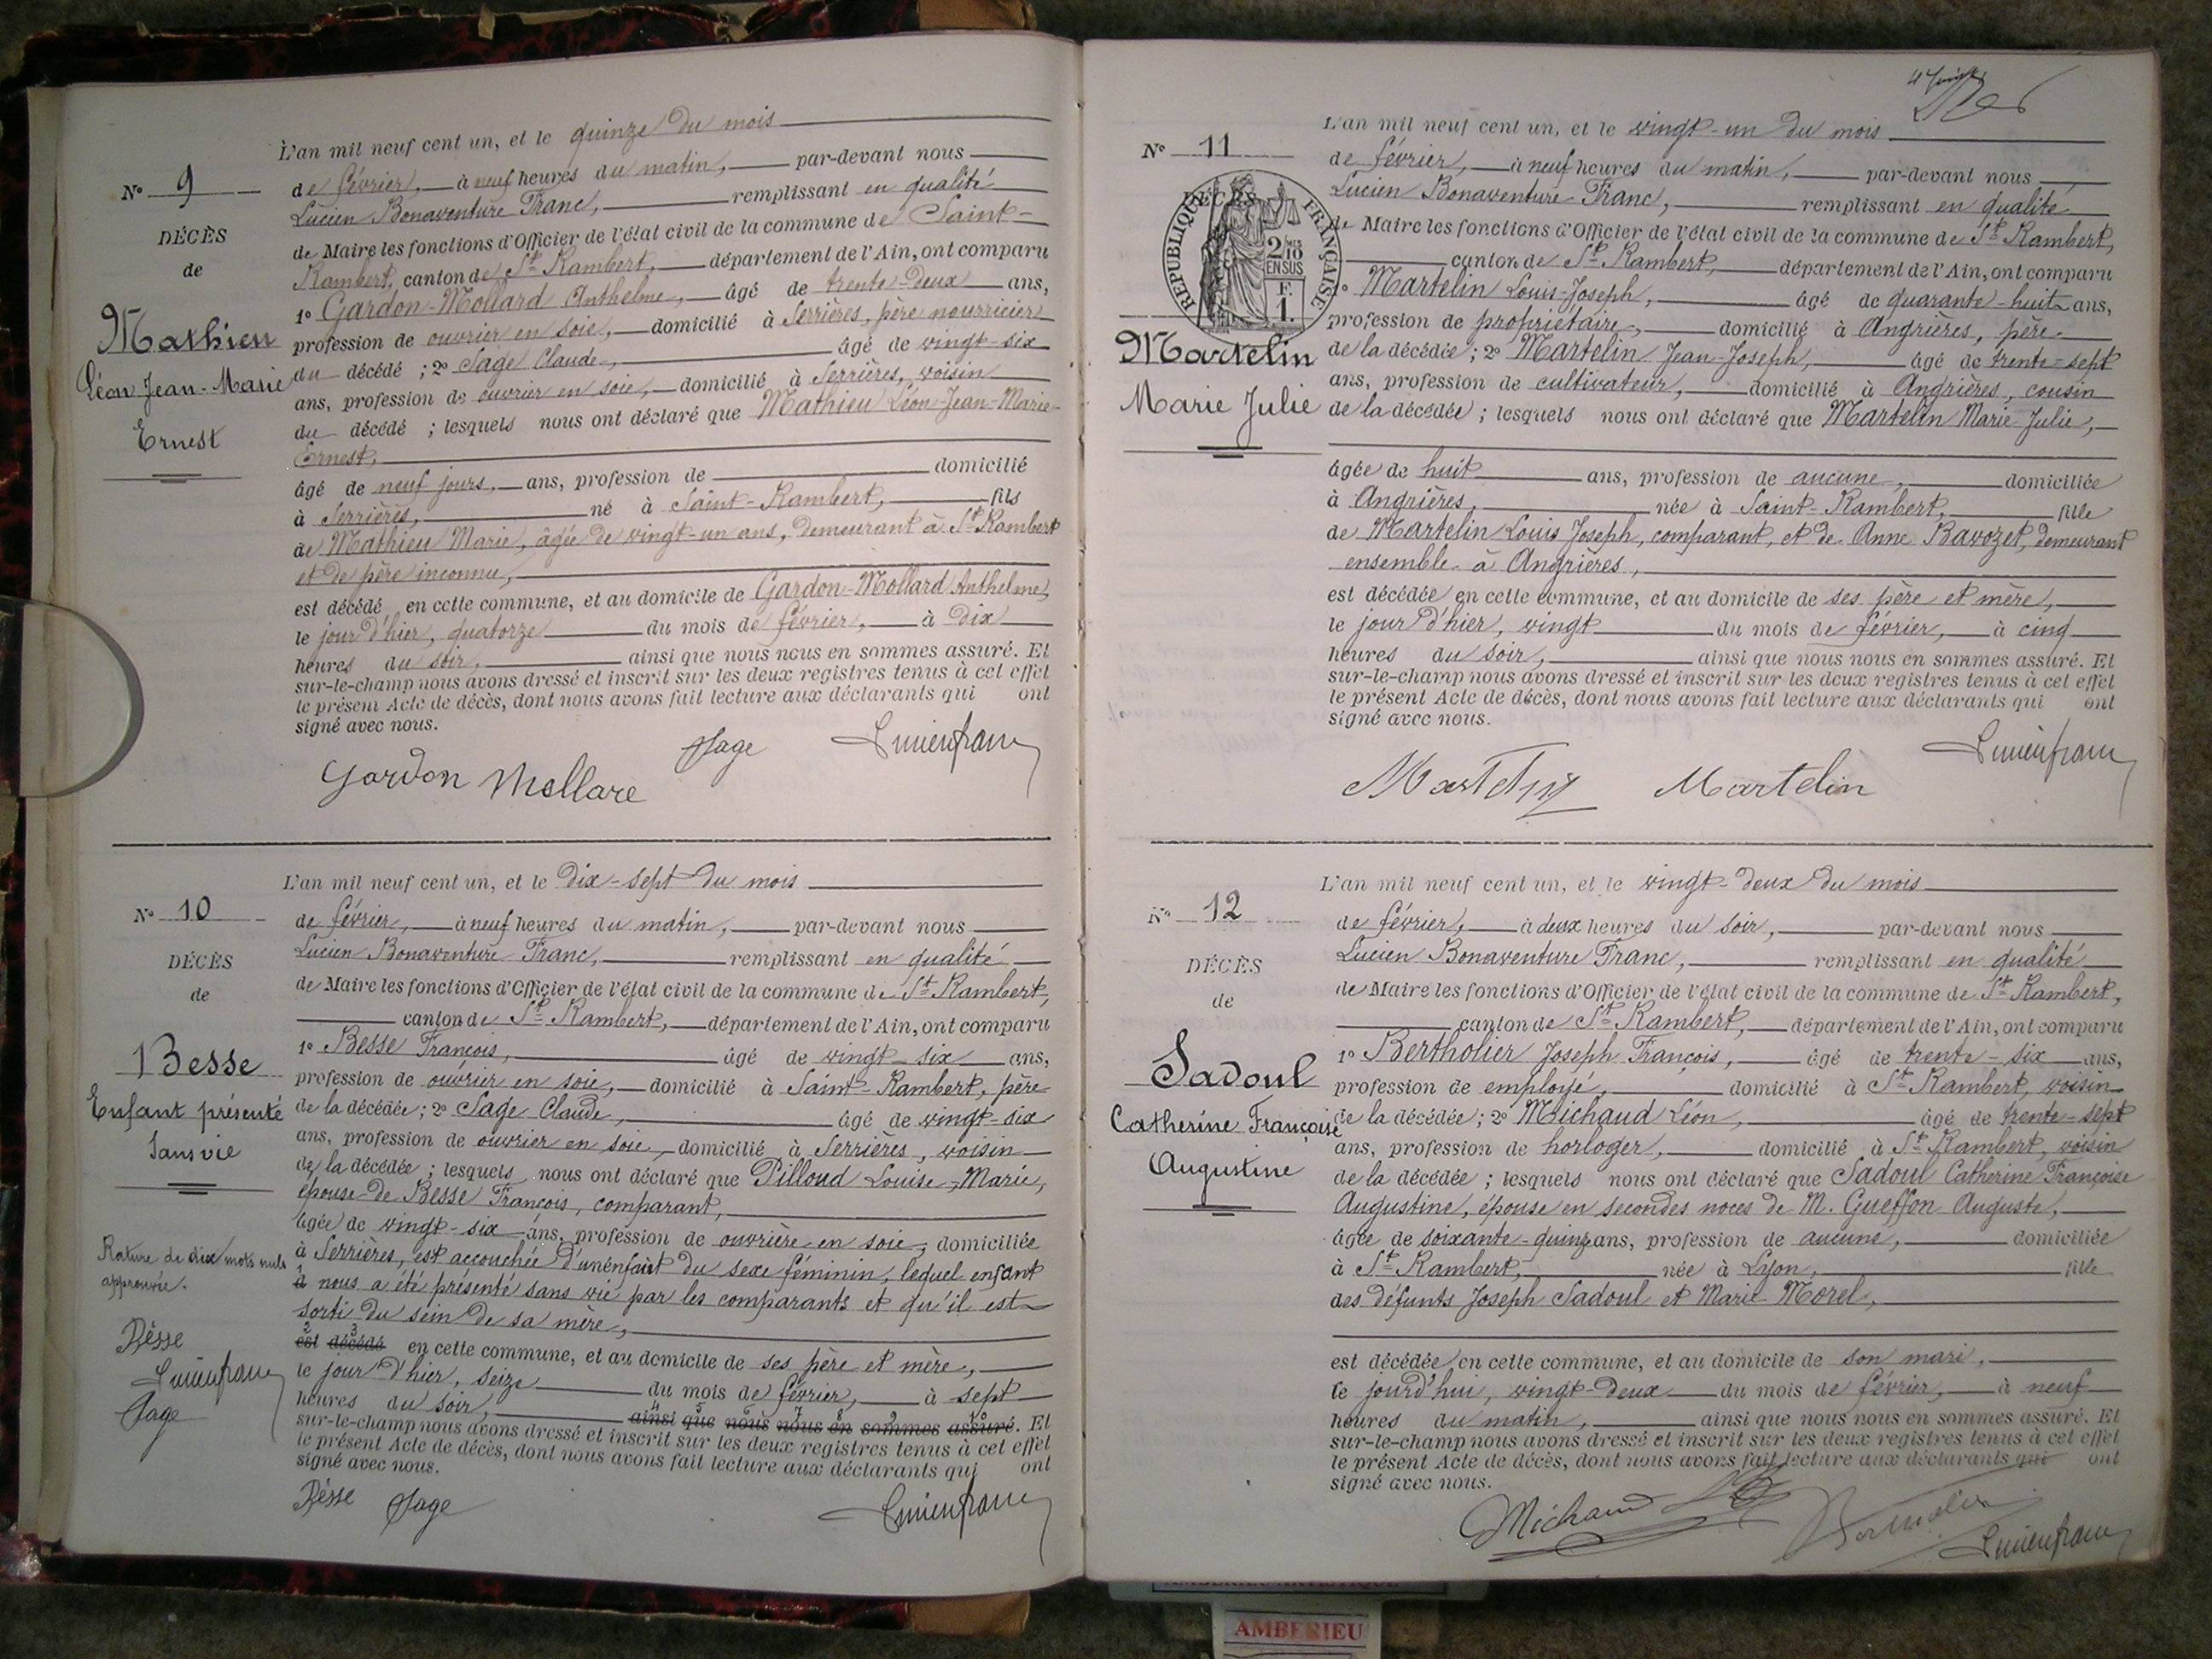 L'an mil neuf cent un, et le quinze du mois
N° 9
de février, à neuf heures du matin, par-devant nous
Lucien Bonaventure Franc, remplissant en qualité
DÉCÈS
de Maire les fonctions d'Officier de l'état civil de la commune de Saint-
de
Rambert, canton de St Rambert, département de l'Ain, ont comparu
1° Gardon-Mollard Anthelme, âgé de trente-deux ans,
Mathieu
profession de ouvrier en soie, domicilié à Serrières, père nourricier
du décédé ; 2° Sage Claude, âgé de vingt-six
Léon Jean-Marie
ans, profession de ouvrier en soie, domicilié à Serrières, voisin
Ernest
du décédé ; lesquels nous ont déclaré que Mathieu Léon Jean-Marie-
Ernest,
âgé de neuf jours, ans, profession de domicilié
à Serrières, né à Saint-Rambert, fils
de Mathieu Marie, âgée de vingt-un ans, demeurant à St Rambert
et de père inconnu,
est décédé en cette commune, et au domicile de Gardon-Mollard Anthelme,
le jour d'hier, quatorze du mois de février, à dix
heures du soir, ainsi que nous nous en sommes assuré. Et
sur-le-champ nous avons dressé et inscrit sur les deux registres tenus à cet effet
le présent Acte de décès, dont nous avons fait lecture aux déclarants qui ont
signé avec nous.
Gardon Mollare Sage Lucien franc
L'an mil neuf cent un, et le dix-sept du mois
N° 10
de février, à neuf heures du matin, par-devant nous
Lucien Bonaventure Franc, remplissant en qualité
DÉCÈS
de Maire les fonctions d'Officier de l'état civil de la commune de St Rambert,
de
canton de St Rambert, département de l'Ain, ont comparu
1° Besse François, âgé de vingt-six ans,
Besse
profession de ouvrier en soie, domicilié à Saint-Rambert, père
Enfant présenté
de la décédée ; 2° Sage Claude, âgé de vingt-six
Sans vie
ans, profession de ouvrier en soie, domicilié à Serrières, voisin
de la décédée ; lesquels nous ont déclaré que Pilloud Louise-Marie,
épouse de Besse François, comparant,
âgée de vingt-six ans, profession de ouvrière en soie, domiciliée
Rature de dix mots nuls
à Serrières, est accouchée d'un enfant du sexe féminin, lequel enfant
approuvée.
1
à nous a été présenté sans vie par les comparants et qu'il est
sorti du sein de sa mère,
2 3
est décédé en cette commune, et au domicile de ses père et mère,
Besse
Lucien franc
Sage
le jour d'hier, seize du mois de février, à sept
4 5 6 7 8 9 10
heures du soir, ainsi que nous nous en sommes assuré. Et
sur-le-champ nous avons dressé et inscrit sur les deux registres tenus à cet effet
le présent Acte de décès, dont nous avons fait lecture aux déclarants qui ont
signé avec nous.
Besse Sage Lucien franc
L'an mil neuf cent un, et le vingt-un du mois
N° 11
de février, à neuf heures du matin, par-devant nous
DÉCÈS
RÉPUBLIQUE FRANÇAISE
2/10 MES
EN SUS
F.
1.
Lucien Bonaventure Franc, remplissant en qualité
de Maire les fonctions d'Officier de l'état civil de la commune de St Rambert,
canton de St Rambert, département de l'Ain, ont comparu
1° Martelin Louis-Joseph, âgé de quarante-huit ans,
profession de propriétaire, domicilié à Angrières, père
Martelin
de la décédée ; 2° Martelin Jean-Joseph, âgé de trente-sept
ans, profession de cultivateur, domicilié à Angrières, cousin
Marie Julie
de la décédée ; lesquels nous ont déclaré que Martelin Marie-Julie,
âgée de huit ans, profession de aucune, domiciliée
à Angrières, née à Saint-Rambert, fille
de Martelin Louis Joseph, comparant, et de Anne Bavozet, demeurant
ensemble à Angrières,
est décédée en cette commune, et au domicile de ses père et mère,
le jour d'hier, vingt du mois de février, à cinq
heures du soir, ainsi que nous nous en sommes assuré. Et
sur-le-champ nous avons dressé et inscrit sur les deux registres tenus à cet effet
le présent Acte de décès, dont nous avons fait lecture aux déclarants qui ont
signé avec nous.
Martelin Martelin Lucien franc
L'an mil neuf cent un, et le vingt-deux du mois
N° 12
de février, à deux heures du soir, par-devant nous
Lucien Bonaventure Franc, remplissant en qualité
DÉCÈS
de Maire les fonctions d'Officier de l'état civil de la commune de St Rambert,
de
canton de St Rambert, département de l'Ain, ont comparu
1° Bertholier Joseph François, âgé de trente-six ans,
Sadoul
profession de employé, domicilié à St Rambert, voisin
Catherine Françoise
de la décédée ; 2° Michaud Léon, âgé de trente-sept
ans, profession de horloger, domicilié à St Rambert, voisin
Augustine
de la décédée ; lesquels nous ont déclaré que Sadoul Catherine Françoise
Augustine, épouse en secondes noces de M. Gueffon Auguste,
âgée de soixante-quinze ans, profession de aucune, domiciliée
à St Rambert, née à Lyon, fille
des défunts Joseph Sadoul et Marie Morel,
est décédée en cette commune, et au domicile de son mari,
le jourd'hui, vingt-deux du mois de février, à neuf
heures du matin, ainsi que nous nous en sommes assuré. Et
sur-le-champ nous avons dressé et inscrit sur les deux registres tenus à cet effet
le présent Acte de décès, dont nous avons fait lecture aux déclarants qui ont
signé avec nous.
Michaud Lucien franc
AMBERIEU